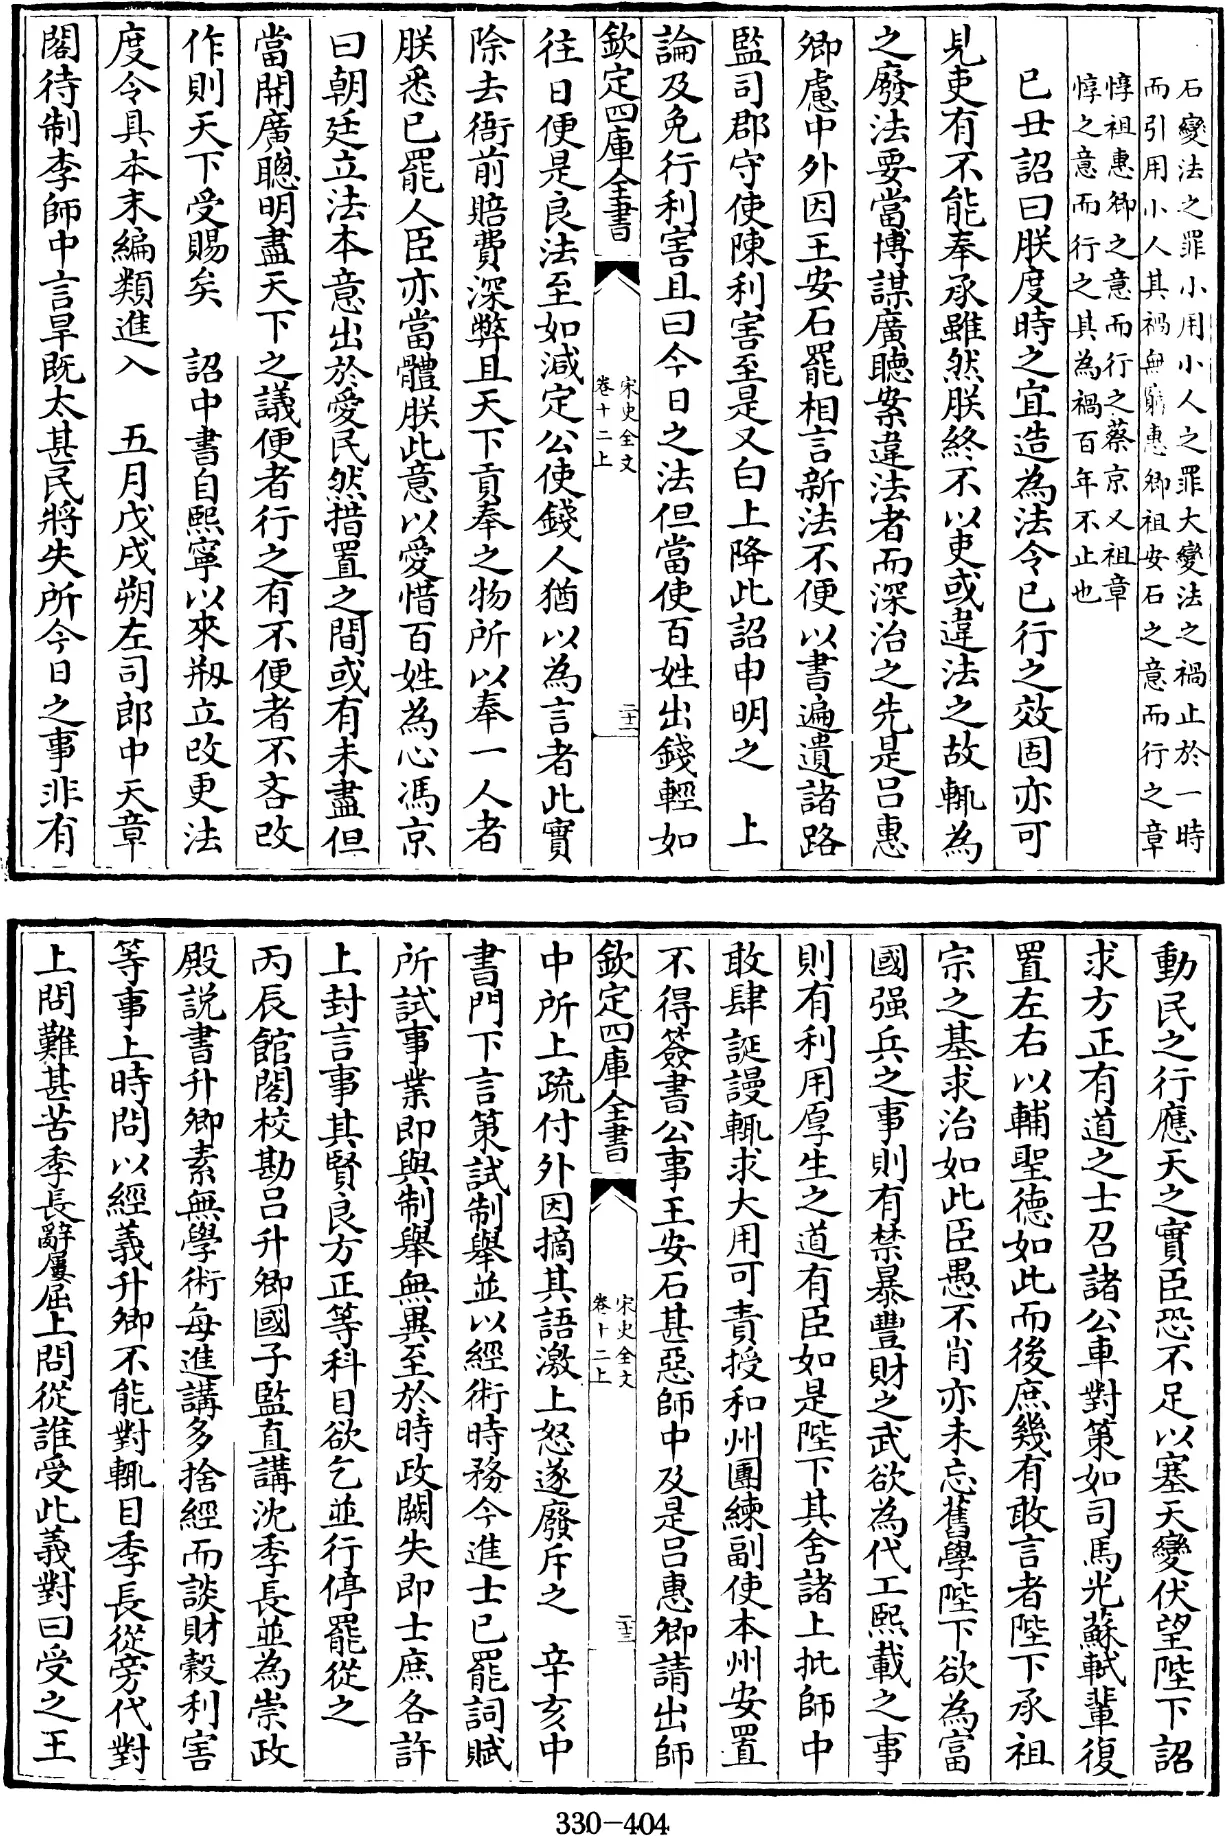 石變法之罪小用小人之罪大變法之禍止於一時
而引用小人其禍無窮惠卿祖安石之意而行之章
惇祖惠卿之意而行之蔡京又祖章
惇之意而行之其為禍百年不止也
己丑詔曰朕度時之宜造為法令已行之效固亦可
見吏有不能奉承雖然朕終不以吏或違法之故輒為
之廢法要當博謀廣聴案違法者而深治之先是吕惠
卿慮中外因王安石罷相言新法不便以書遍遺諸路
監司郡守使陳利害至是又白上降此詔申明之　上
論及免行利害且曰今日之法但當使百姓出錢輕如
欽定四庫全書
宋史全文
卷十二上
二十二
往日便是良法至如減定公使錢人猶以為言者此實
除去衙前賠費深弊且天下貢奉之物所以奉一人者
朕悉已罷人臣亦當體朕此意以愛惜百姓為心馮京
曰朝廷立法本意出於愛民然措置之間或有未盡但
當開廣聰明盡天下之議便者行之有不便者不吝改
作則天下受賜矣　詔中書自熙寧以來剏立改更法
度令具本末編類進入　五月戊戌朔左司郎中天章
閣待制李師中言旱既太甚民將失所今日之事非有
動民之行應天之實臣恐不足以塞天變伏望陛下詔
求方正有道之士召諸公車對策如司馬光蘇軾輩復
置左右以輔聖德如此而後庶幾有敢言者陛下承祖
宗之基求治如此臣愚不肖亦未忘舊學陛下欲為富
國强兵之事則有禁暴豐財之武欲為代工熙載之事
則有利用厚生之道有臣如是陛下其舍諸上批師中
敢肆誕謾輒求大用可責授和州團練副使本州安置
不得簽書公事王安石甚惡師中及是吕惠卿請出師
欽定四庫全書
宋史全文
卷十二上
二十三
中所上疏付外因摘其語激上怒遂廢斥之　辛亥中
書門下言策試制舉並以經術時務今進士已罷詞賦
所試事業即與制舉無異至於時政闕失即士庶各許
上封言事其賢良方正等科目欲乞並行停罷從之
丙辰館閣校勘吕升卿國子監直講沈季長並為崇政
殿説書升卿素無學術每進講多捨經而談財穀利害
等事上時問以經義升卿不能對輒目季長從旁代對
上問難甚苦季長辭屢屈上問從誰受此義對曰受之王
330-404